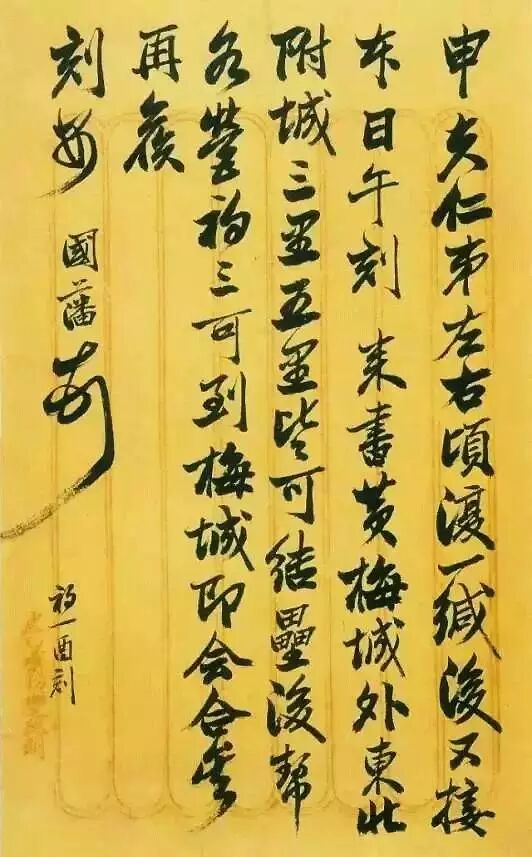 申夫仁弟左右頃復一緘後又接
本日午刻 来書黄梅城外東北
附城三里五里皆可結壘後幫
各營初三可到梅城即会合矣
再候
刻安 國藩頓首
初一酉刻